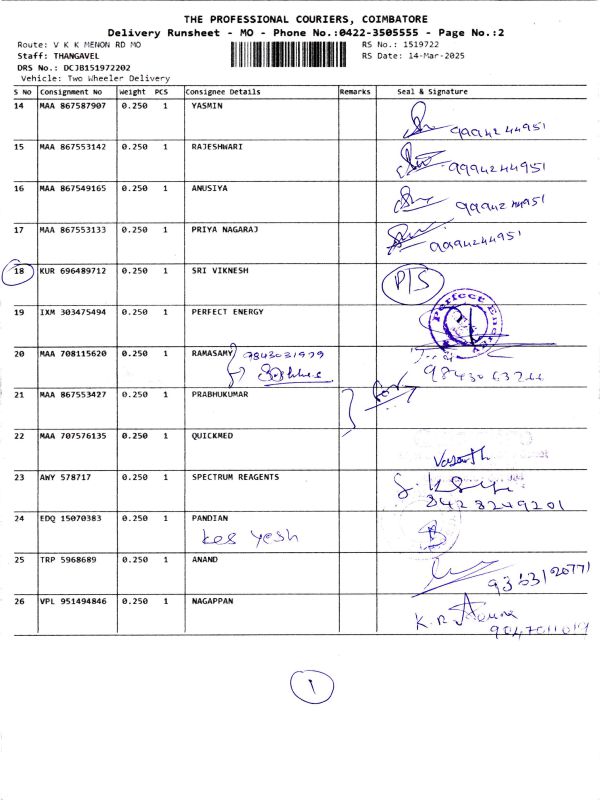 THE PROFESSIONAL COURIERS, COIMBATORE
Delivery Runsheet - MO - Phone No.:0422-3505555 - Page No.:2
Route: V K K MENON RD MO RS No.: 1519722
Staff: THANGAVEL RS Date: 14-Mar-2025
DRS No.: DCJB151972202
Vehicle: Two Wheeler Delivery
S No Consignment No Weight PCS Consignee Details Remarks Seal & Signature
14 MAA 867587907 0.250 1 YASMIN
9994244951
15 MAA 867553142 0.250 1 RAJESHWARI
9994244951
16 MAA 867549165 0.250 1 ANUSIYA
9994244951
17 MAA 867553133 0.250 1 PRIYA NAGARAJ
9994244951
18 KUR 696489712 0.250 1 SRI VIKNESH P/S
19 IXM 303475494 0.250 1 PERFECT ENERGY
Perfect Energy
20 MAA 708115620 0.250 1 RAMASAMY 9843031979
21 MAA 867553427 0.250 1 PRABHUKUMAR
for
22 MAA 707576135 0.250 1 QUICKMED
Vasanth
23 AWY 578717 0.250 1 SPECTRUM REAGENTS
8428249201
24 EDQ 15070383 0.250 1 PANDIAN
25 TRP 5968689 0.250 1 ANAND
9363120771
26 VPL 951494846 0.250 1 NAGAPPAN
K.R
1